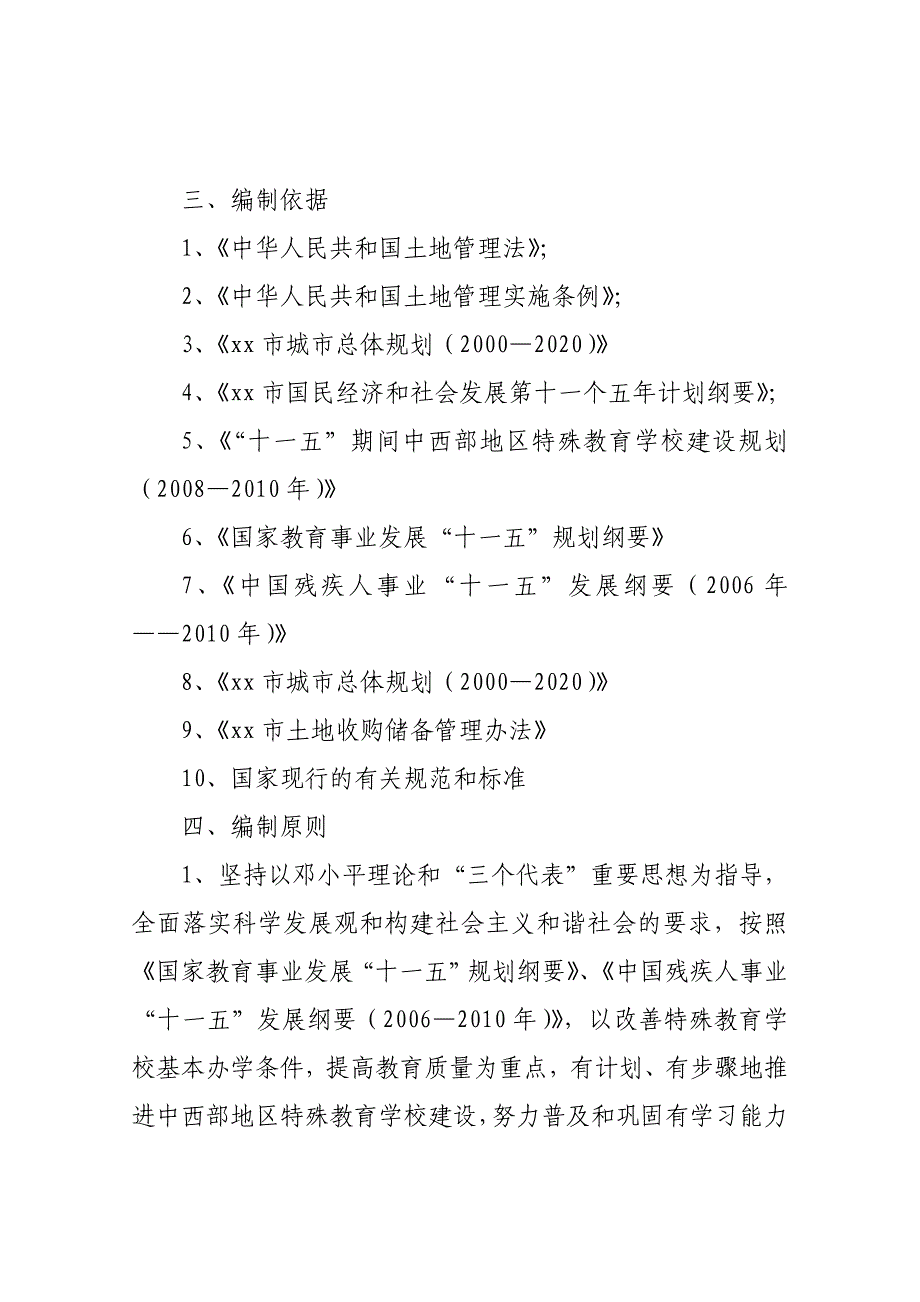 三、编制依据
1、《中华人民共和国土地管理法》；
2、《中华人民共和国土地管理实施条例》；
3、《xx市城市总体规划（2000—2020）》
4、《xx市国民经济和社会发展第十一个五年计划纲要》；
5、《“十一五”期间中西部地区特殊教育学校建设规划
（2008—2010年）》
6、《国家教育事业发展“十一五”规划纲要》
7、《中国残疾人事业“十一五”发展纲要（2006年
——2010年）》
8、《xx市城市总体规划（2000—2020）》
9、《xx市土地收购储备管理办法》
10、国家现行的有关规范和标准
四、编制原则
1、坚持以邓小平理论和“三个代表”重要思想为指导，
全面落实科学发展观和构建社会主义和谐社会的要求，按照
《国家教育事业发展“十一五”规划纲要》、《中国残疾人事业
“十一五”发展纲要（2006—2010年）》，以改善特殊教育学
校基本办学条件，提高教育质量为重点，有计划、有步骤地推
进中西部地区特殊教育学校建设，努力普及和巩固有学习能力